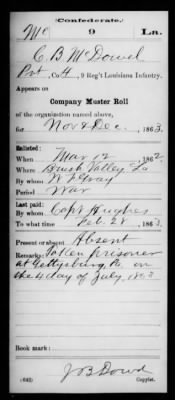 (Confederate.)
Mc 9 La.
C. B. McDowel
Pvt Co A, 9 Reg't Louisiana Infantry.
Appears on
Company Muster Roll
of the organization named above,
for Nov & Dec, 1863.
Enlisted:
When Mar 12, 1862.
Where Brush Valley, La
By whom W. F. Gray
Period War
Last paid:
By whom Capt Hughes
To what time Feb. 28, 1863.
Present or absent Absent
Remarks: Taken prisoner
at Gettysburg, Pa. on
the 4 day of July, 1863
Book mark:
(642) J B Dowd
Copyist.